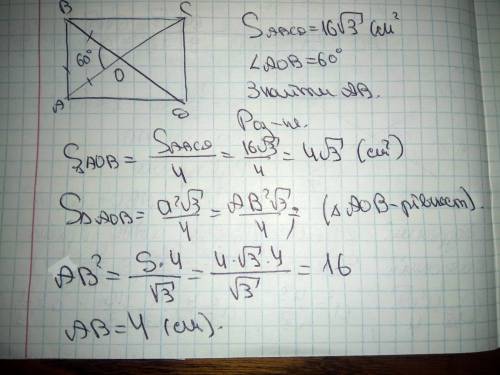 B C
60°
O
A D
S ABCD = 16√3 см²
∠AOB = 60°
Знайти AB.
Роз-не.
S△AOB = S ABCD / 4 = 16√3 / 4 = 4√3 (см²)
S△AOB = a²√3 / 4 = AB²√3 / 4 ; (△AOB - рівност).
AB² = S·4 / √3 = 4·√3·4 / √3 = 16
AB = 4 (см).